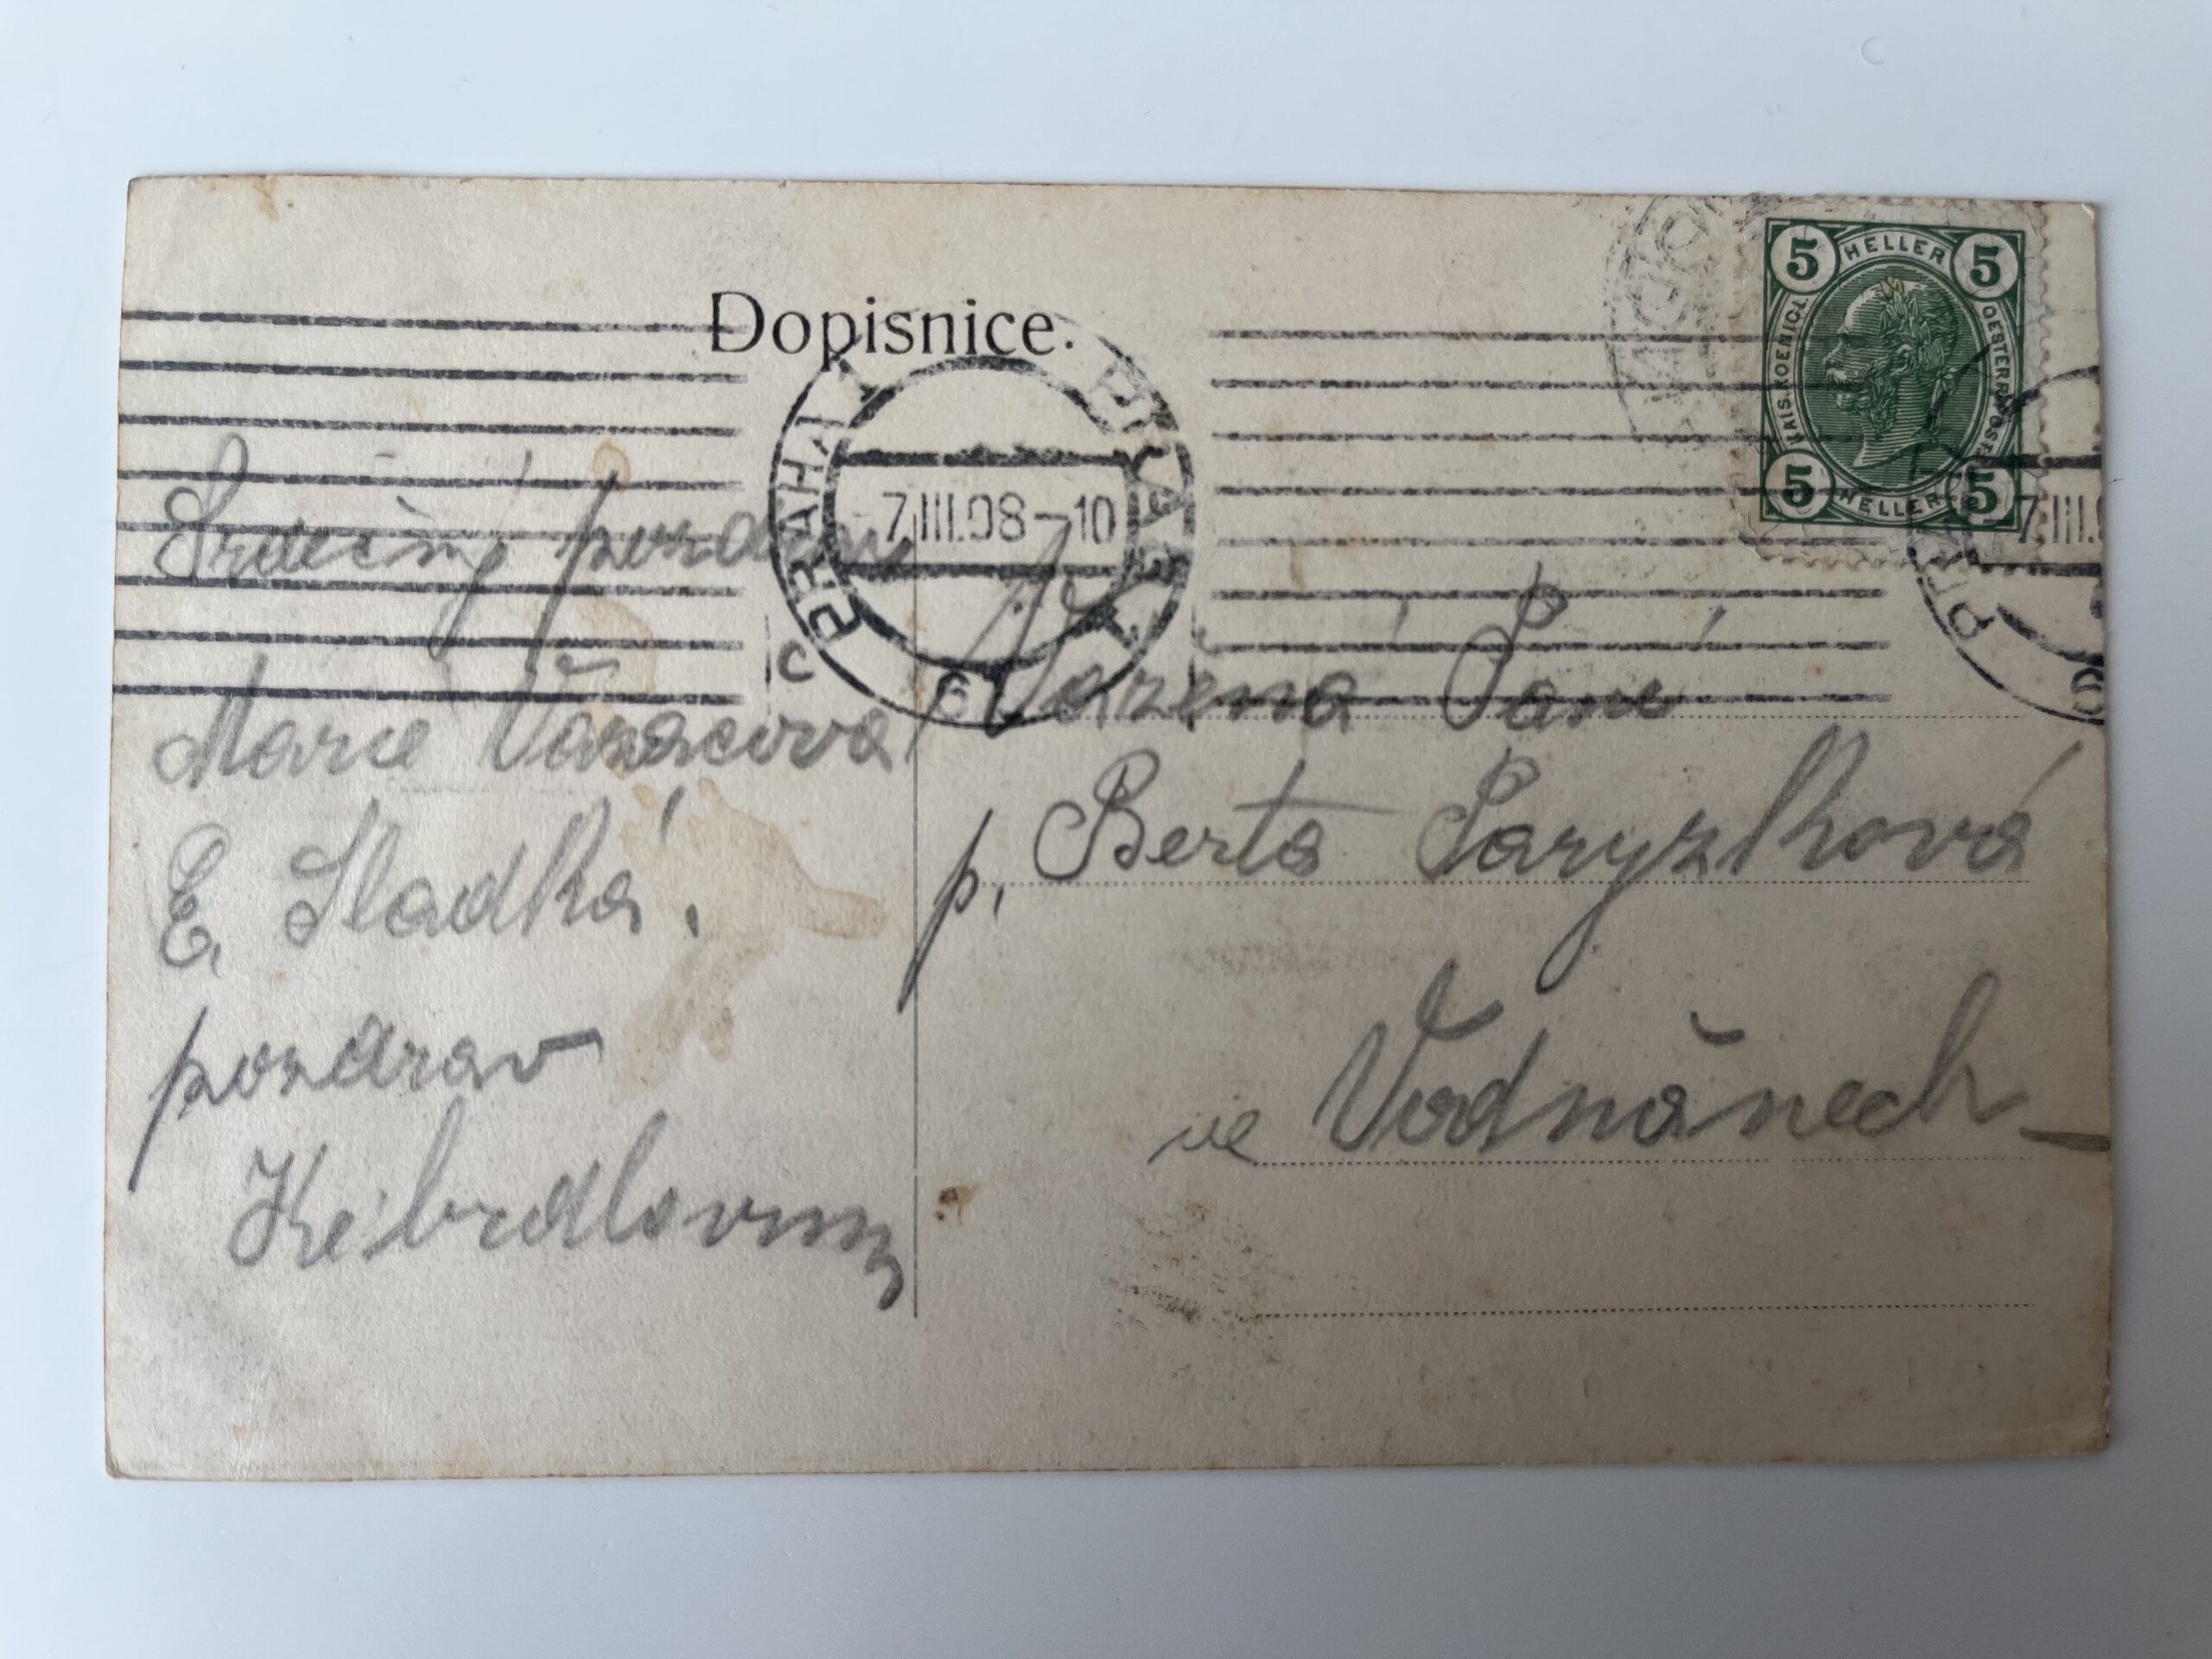 Dopisnice.
5 HELLER 5
KAIS. KOENIGL. OESTERR. POST
5 HELLER 5
PRAHA 1 PRAG 1
7.III.08-10
7.III.
Srdečný pozdrav
Marie
E. Sladká.
pozdrav
Vážená Paní
p. Berta Paryzková
ve Vodňanech